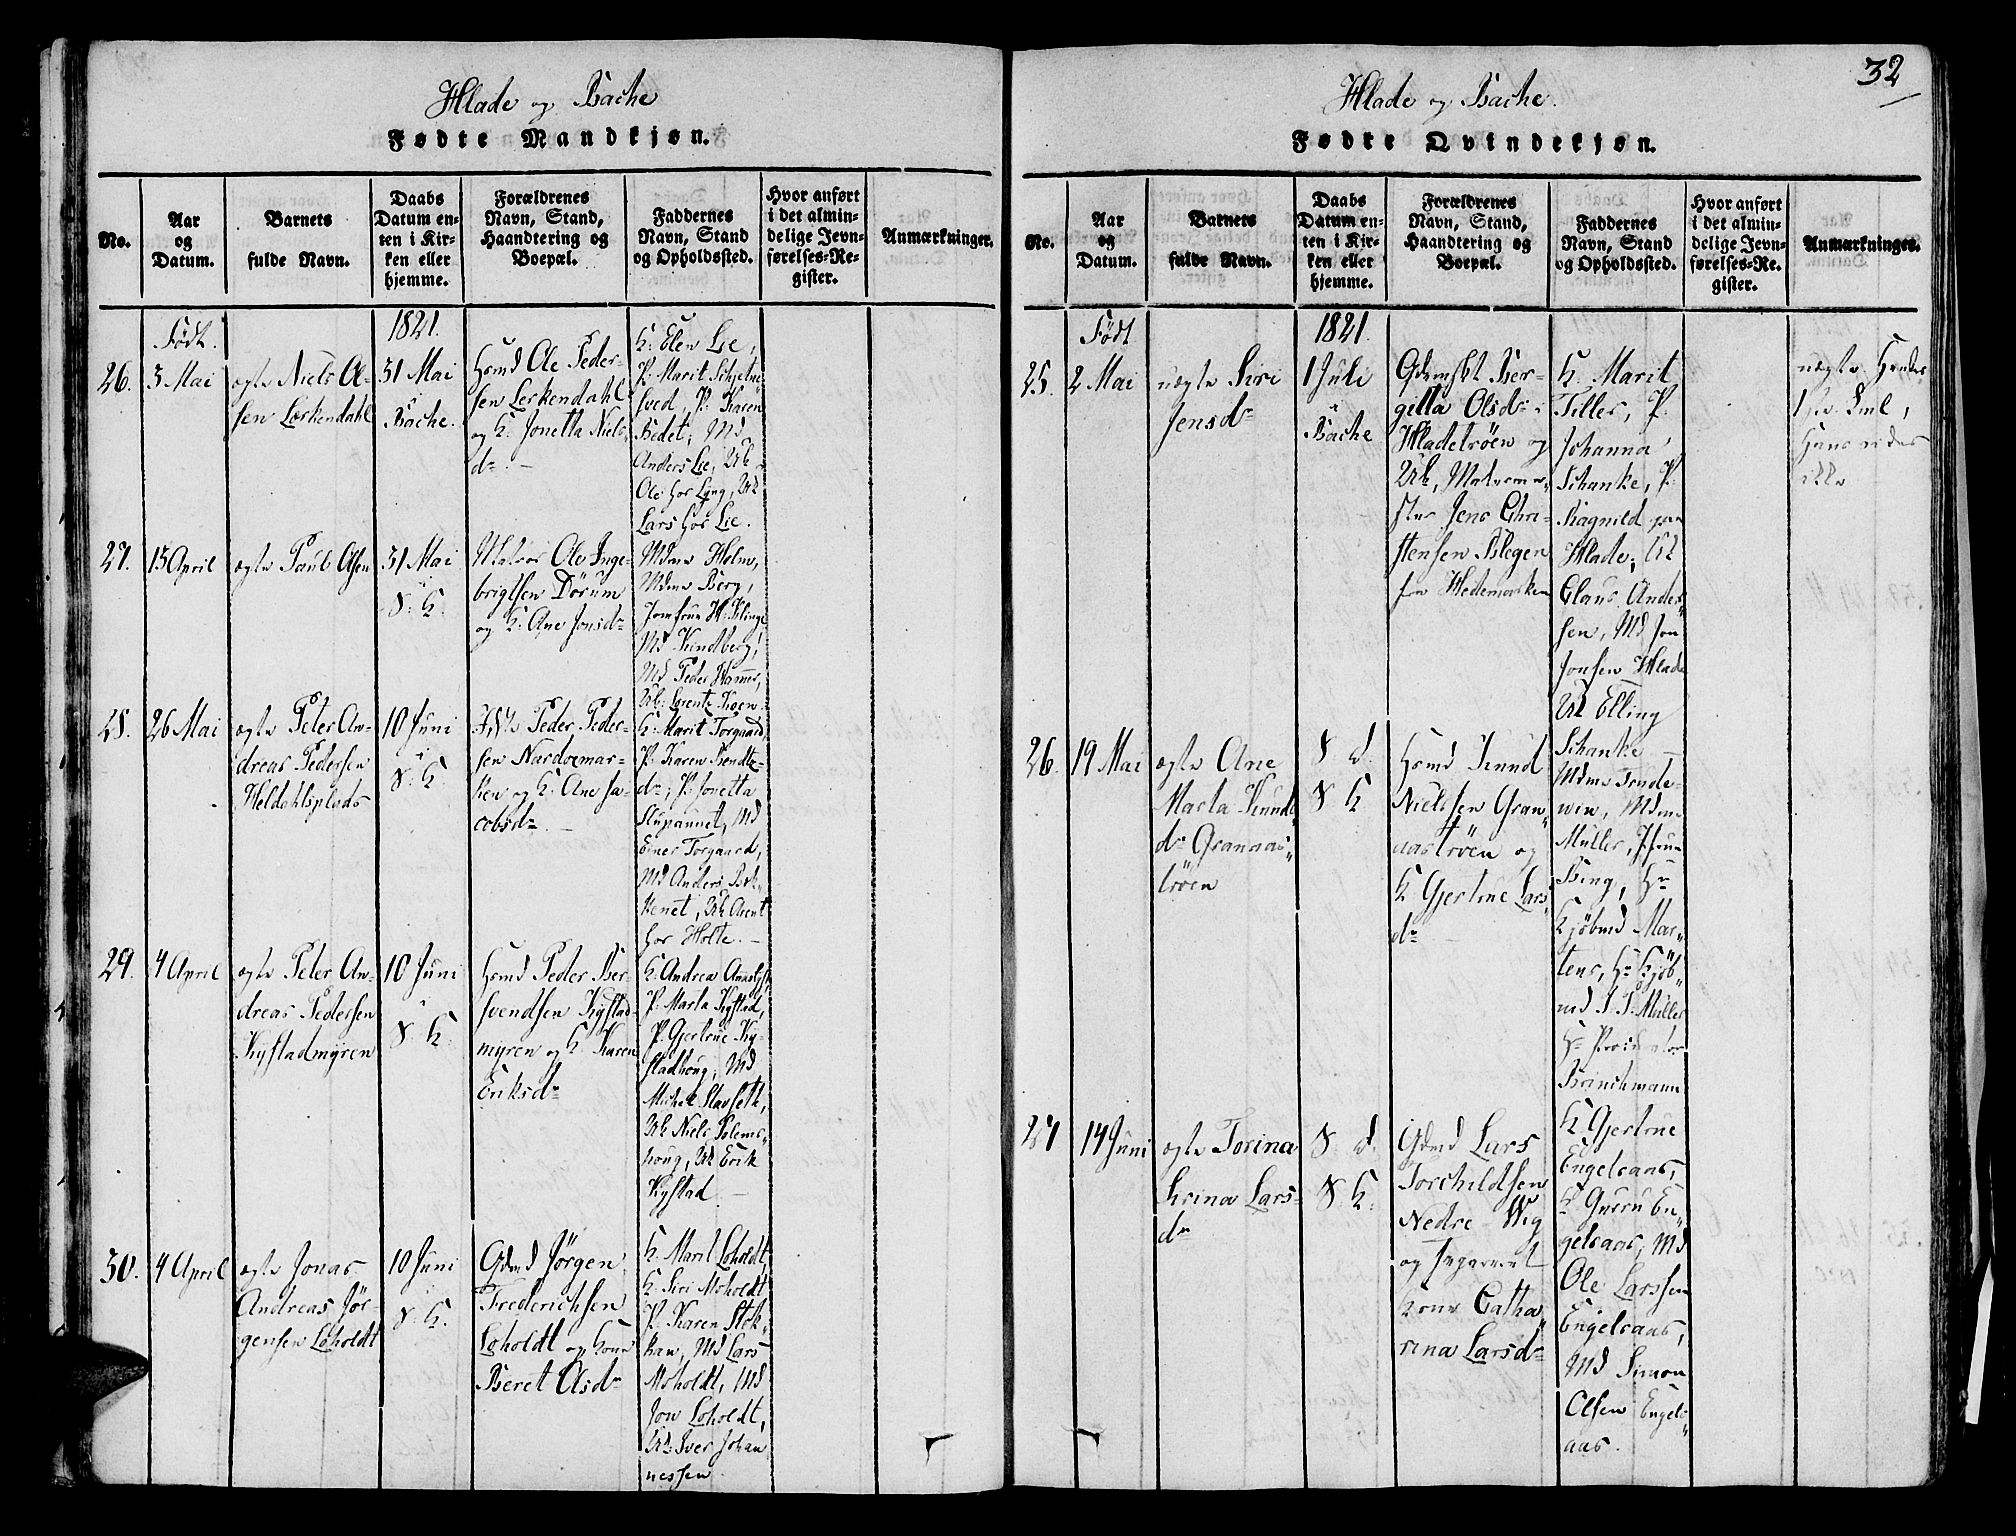 Hlade og Bache
Fødte Mandkjøn.
No.
Aar
og
Datum.
Barnets
fulde Navn.
Daabs
Datum en-
ten i Kir-
ken eller
hjemme.
Forældrenes
Navn, Stand,
Haandtering og
Boepæl.
Faddernes
Navn, Stand
og Opholdssted.
Hvor anført
i det almin-
delige Jevn-
førelses-Re-
gister.
Anmærkninger.
Født.
1821.
26.
3 Mai
ægte Niels Ol-
sen Lerkendahl
31 Mai
i
Bache.
Hsmd Ole Peder-
sen Lerkendahl
og K: Jonetta Niels
dr.
K: Elen Lie,
P: Marit Schjelne
sved, P: Karen
Bedet; Md
Anders Lie, Uk
Ole hos Ling, Uk
Lars hos Lie.
27.
15 April
ægte Paul Olsen
31 Mai
i
S. K.
Matros Ole Inge-
brigtsen Dorum
og K: Ane Jonsdr
Mdme Holm,
Mdme Berg,
Jomfrue H: Klinge
Md Kindberg,
Md Peder Hammer,
Uk: Lorentz Koen
28.
26 Mai
ægte Peter An-
dreas Pedersen
Heldahlsplads
10 Juni
i
S. K.
Inst: Peder Peder-
sen Nardoemar-
ken og K: Ane Ja-
cobsdr
K: Marit Torgaard,
P: Karen Bendts-
dr; P: Jonetta
Stupannet, Md
Einer Torgaard,
Md Anders Bek-
kenet, Uk Arent
hos Holte.
29.
4 April
ægte Peter An-
dreas Pedersen
Kystadmyren
10 Juni
i
S. K.
Hsmd Peder Ber-
svendsen Kystad-
myren og K: Karen
Eriksdr
K: Andrea
P: Marta Kystad,
P: Gjertrue Ky-
stadhoug, Md
Michel Stavseth,
Uk Niels Blems-
houg, Uk Erik
Kystad
30.
4 April
ægte Jonas
Andreas Jör-
gensen Loholdt
10 Juni
i
S. K.
Gdmd Jörgen
Frederichsen
Loholdt og Kone
Beret Olsdr
K: Marit Loholdt,
K: Siri Moholdt
P: Karen Stok-
kan, Md Lars
Moholdt, Md
Jon Loholdt,
Uk: Iver Johan
nessen
32
Hlade og Bache.
Fødte Qvindekjøn.
No.
Aar
og
Datum.
Barnets
fulde Navn.
Daabs
Datum en-
ten i Kir-
ken eller
hjemme.
Forældrenes
Navn, Stand,
Haandtering og
Boepæl.
Faddernes
Navn, Stand
og Opholdssted.
Hvor anført
i det almin-
delige Jevn-
førelses-Re-
gister.
Anmærkninger.
Født
1821.
25.
2 Mai
uægte Siri
Jensdr
1 Juli
i
Bache
Gdemsbt Ber-
getta Olsdr i
Hladetröen og
Uk, Matroema
Jens Chri-
stensen Blegen
fra Hedemarken
K: Marit
Tiller, P:
Johanna
Schanke, P:
Ragnild paa
Hlade, Uk
Claus Ander-
sen, Md Jon
Jonsen Hlade
Uk Elling
Schanke
uægte Hendes
1ste
Hans vides
ikke
26.
19 Mai
ægte Ane
Marta Knuds
dr Grannas
tröen
S. d.
S K
Hsmd Knud
Nielsen Gran
naströen og
K Gjertrue Lars
dr
Mdme Trude-
win, Mdme
Müller, Jfrue
Bing, Hr
Kjöbmd Mar-
tens, Hr Kjöb-
md J. P. Müller
Hr Procurator
Brinchmann
27
14 Juni
ægte Torina
Sirina Lars-
dr
S. d.
S K.
Gdmd Lars
Torchildsen
Nedre Wig
og Ingeniret
Kone Catha
rina Larsdr
K Gjertrue
Engelsaas,
K Gurru En-
gelsaas, Md
Ole Larssen
Engelsaas,
Md Simon
Olsen Engels
aas.